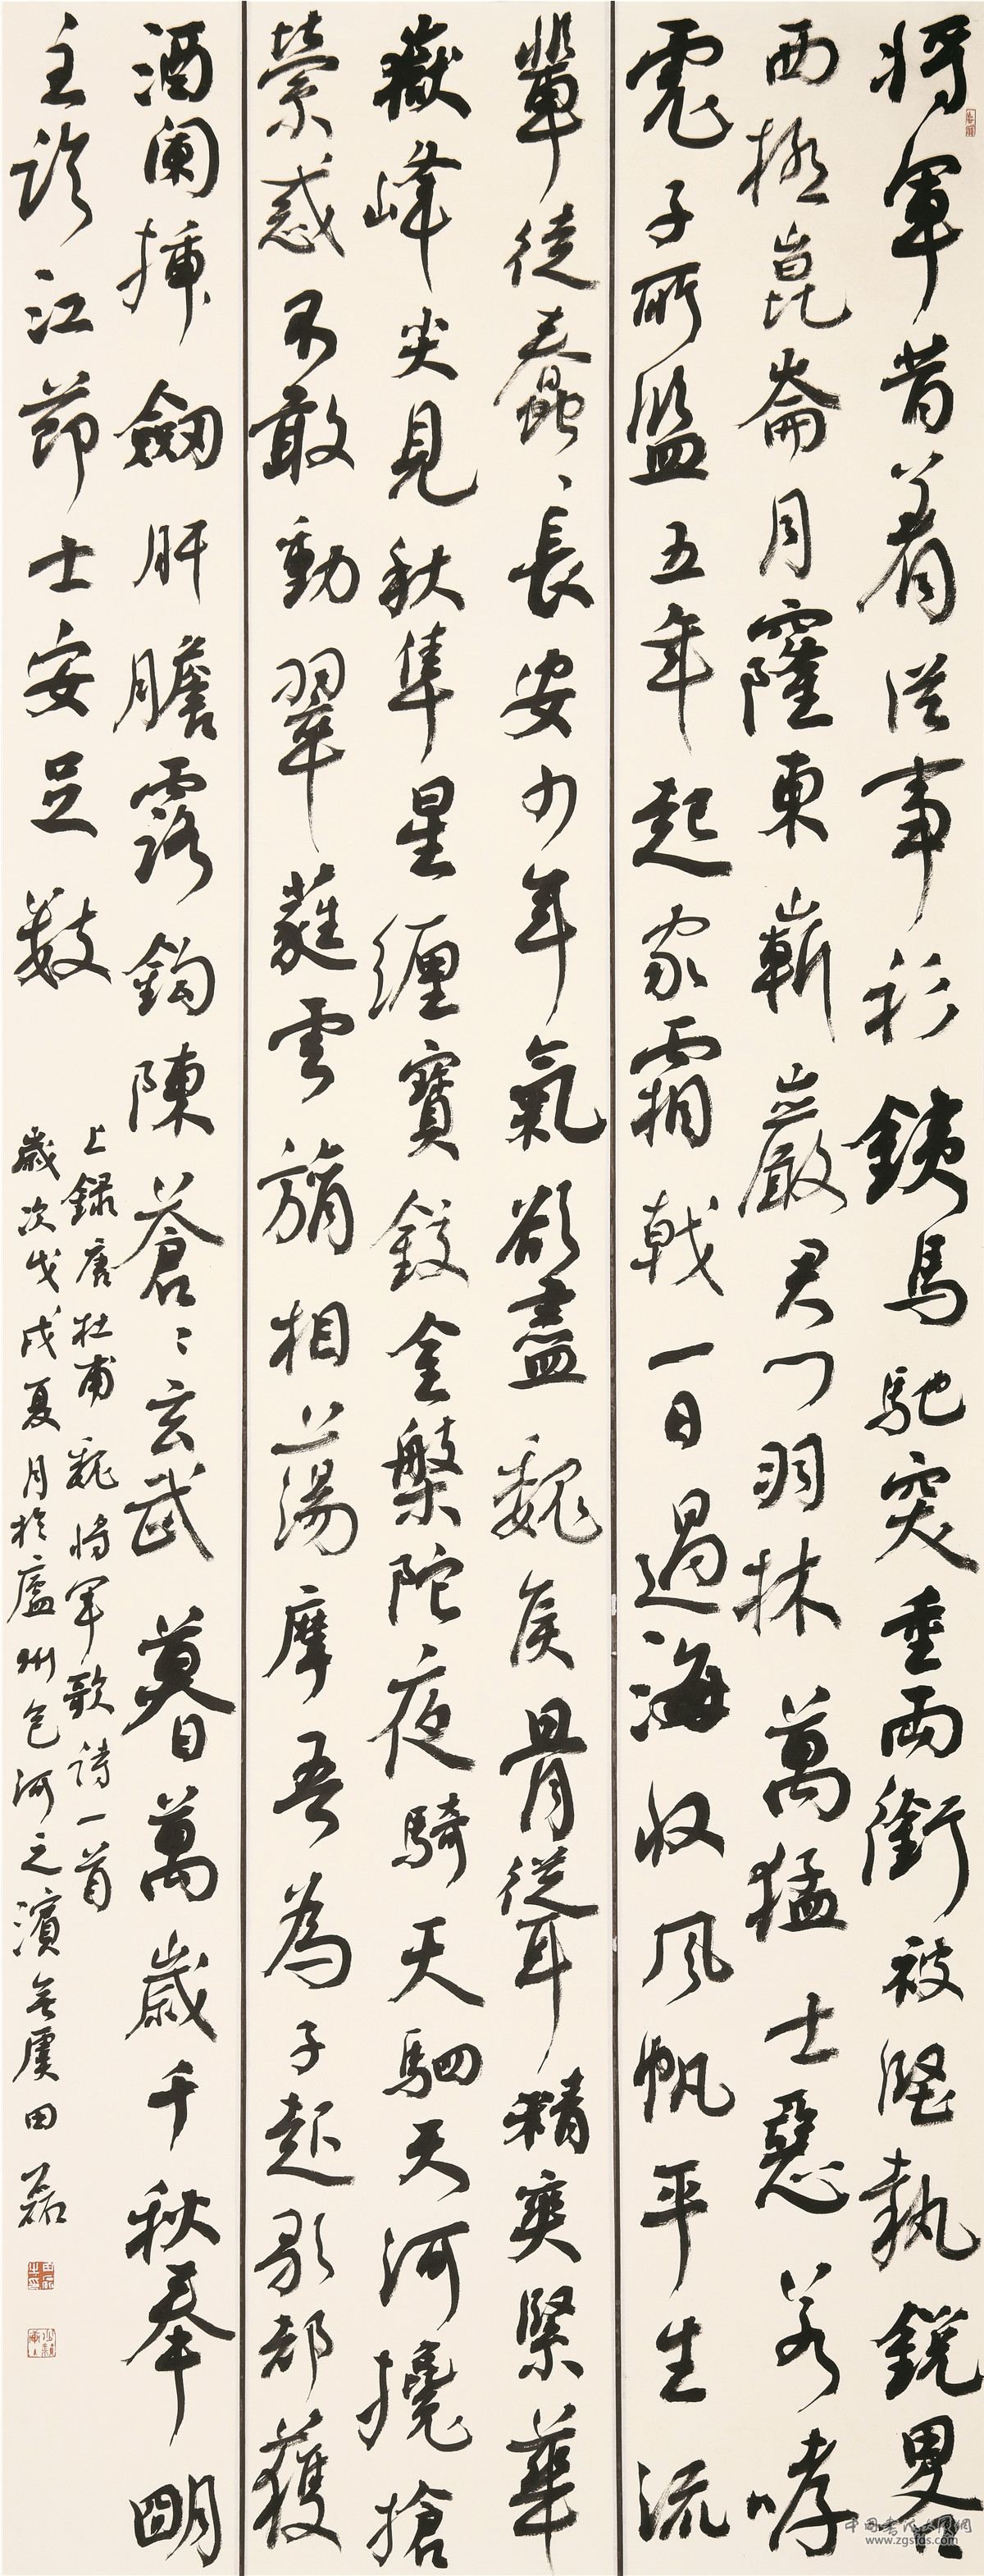 將軍昔著從事衫鐵馬馳突重兩銜被堅執銳略
西極崑崙月窟東嶄巖君門羽林萬猛士惡若哮
虎子所監五年起家霜戟一日過海收風帆平生流
輩徒蠢〻長安少年氣欲盡魏侯骨聳精爽緊華
嶽峰尖見秋隼星纏寶鉸金盤陀夜騎天駟天河攙搶
熒惑不敢動翠蕤雲旓相蕩摩吾為子起歌都護
酒闌插劒肝膽露鈎陳蒼〻玄武暮萬歲千秋奉明
主臨江節士安足數
上錄唐杜甫魏將軍歌詩一首
歲次戊戌夏月於廬州包河之濱無虞田磊
中国书法大图网
www.zgsfds.com